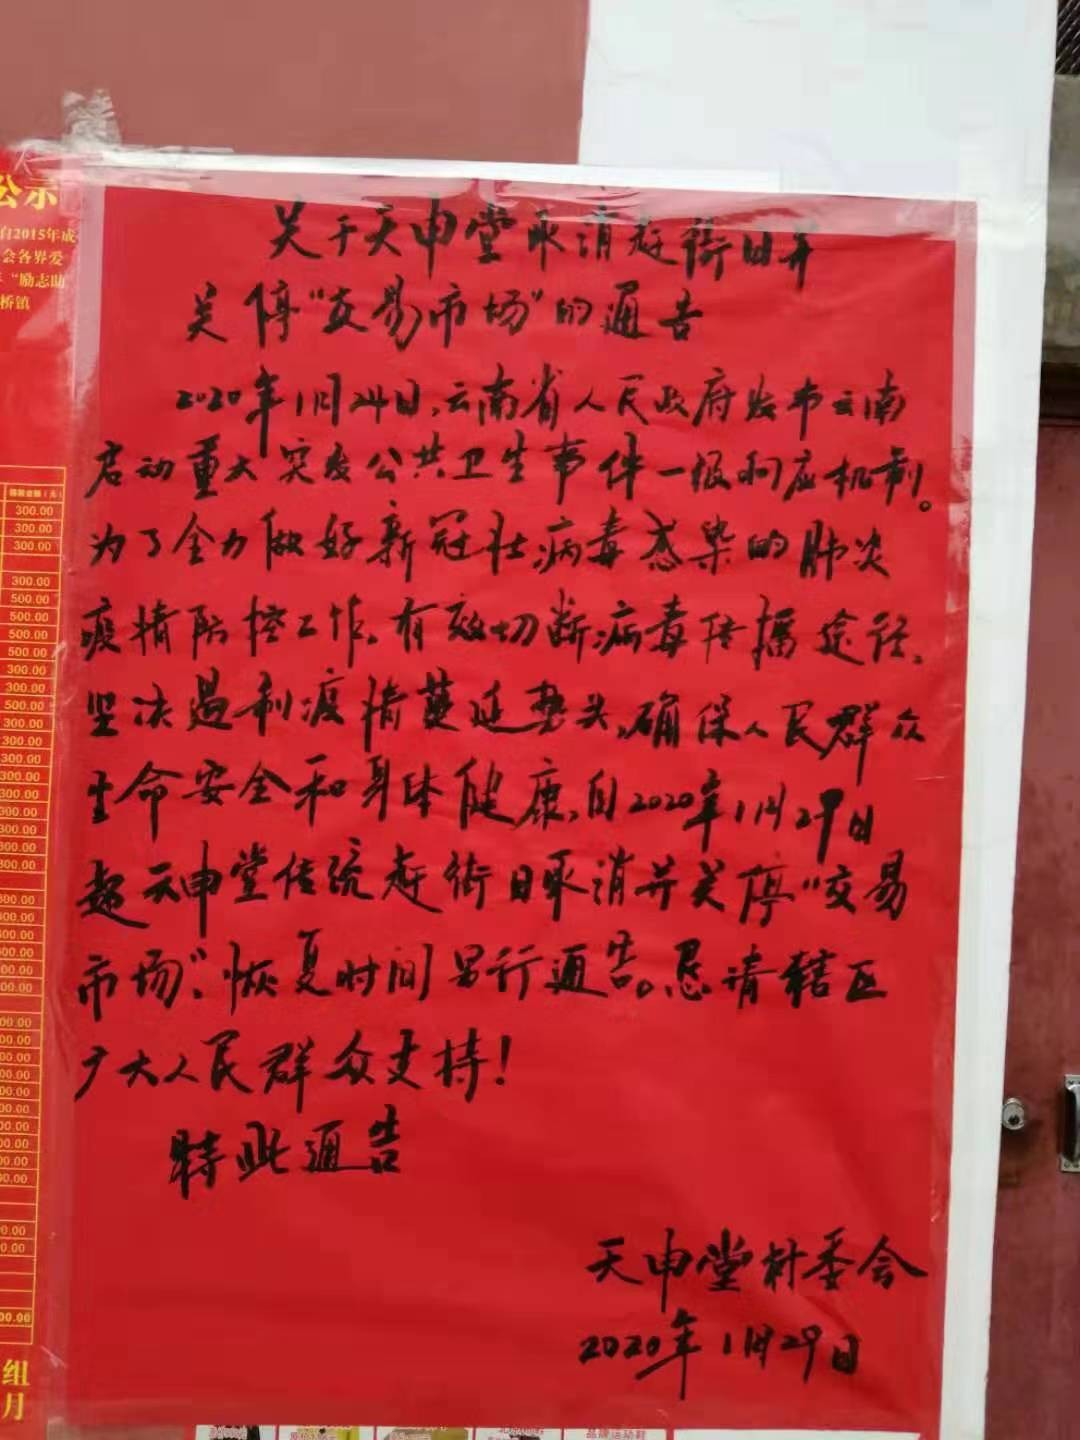 公示
自2015年成
会各界爱
“励志助
桥镇
关于天申堂取消赶街日并
关停“交易市场”的通告
2020年1月24日,云南省人民政府发布云南
启动重大突发公共卫生事件一级响应机制。
为了全力做好新冠状病毒感染的肺炎
疫情防控工作,有效切断病毒传播途径,
坚决遏制疫情蔓延势头,确保人民群众
生命安全和身体健康,自2020年1月29日
起天申堂传统赶街日取消并关停“交易
市场”,恢复时间另行通告。恳请辖区
广大人民群众支持!
特此通告
天申堂村委会
2020年1月29日
300.00
300.00
300.00
300.00
500.00
500.00
500.00
500.00
300.00
300.00
500.00
300.00
300.00
组
月
品牌运动鞋